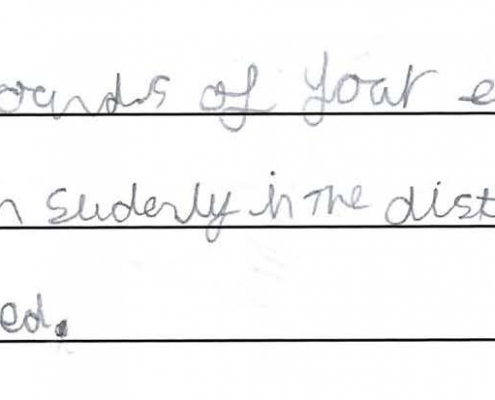 ounds of your e
n suddenly in the dist
ed.